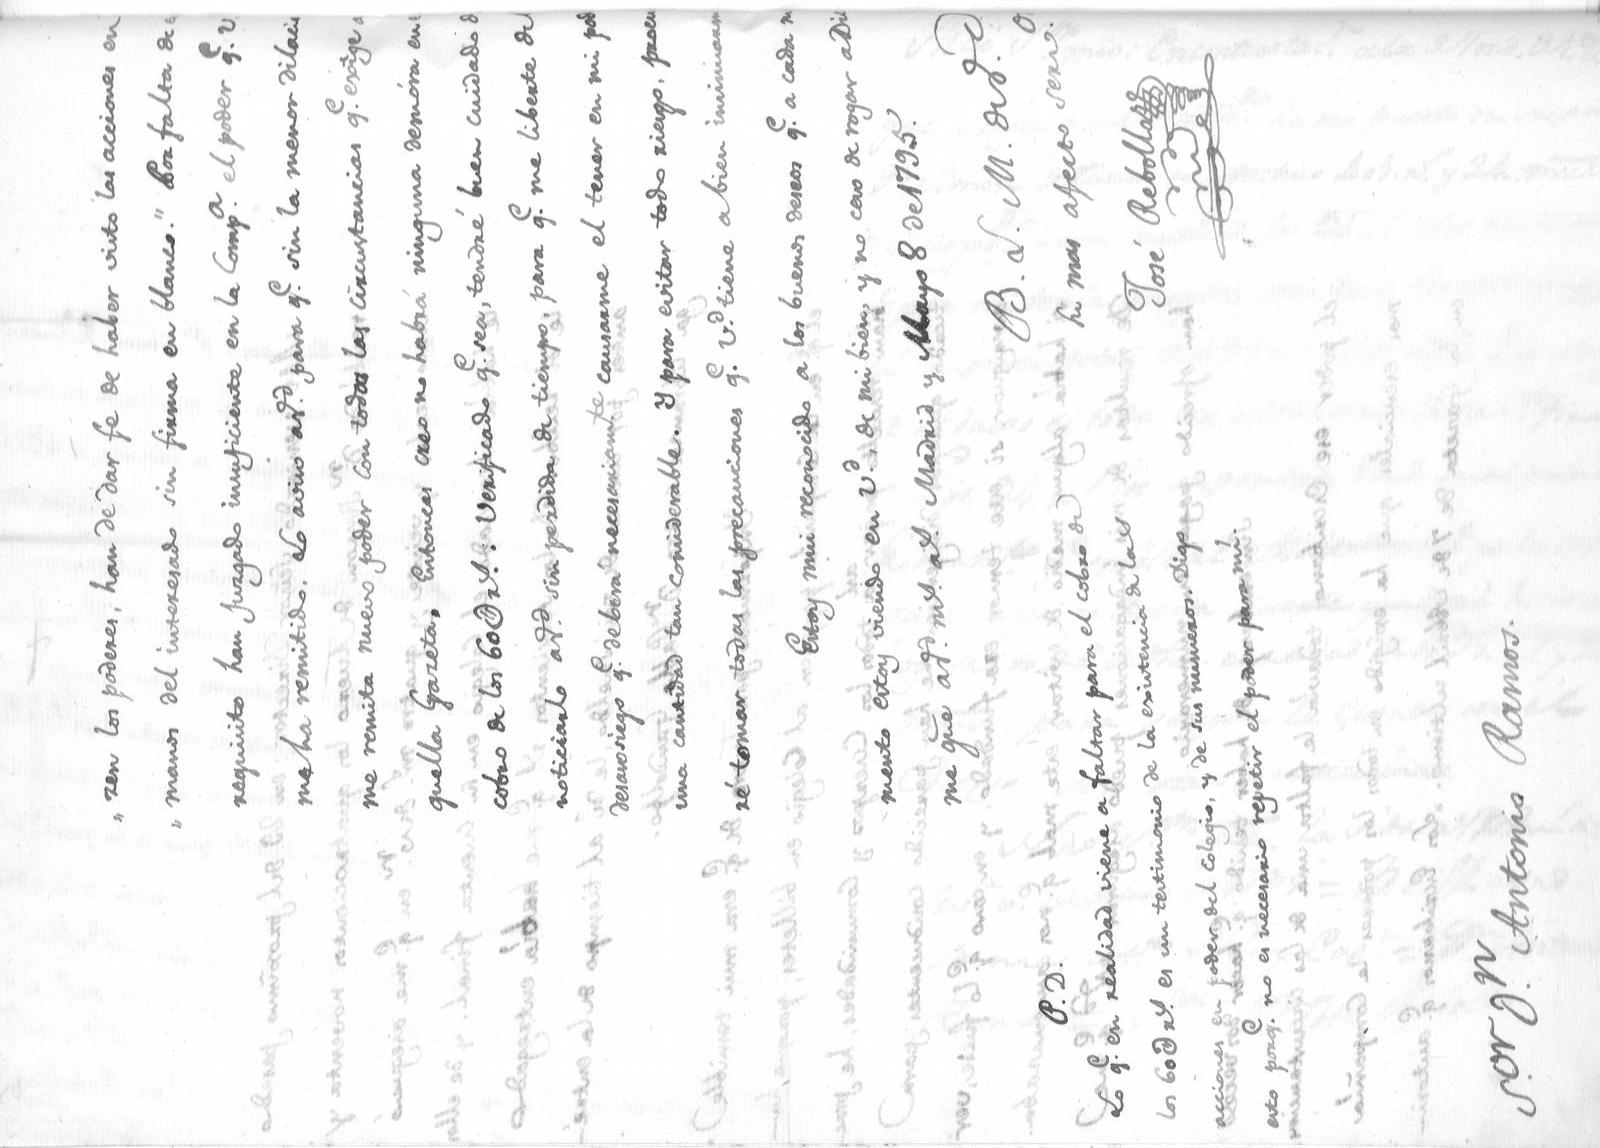 „ ren los poderes, han de dar fe de haber visto las acciones en
„ manos del interesado sin firma en blanco." Por falta de
requisito han juzgado insuficiente en la Comp.ª el poder q.e V
me ha remitido. Lo aviso a v.d para q.e sin la menor dilaci
me remita nuevo poder con todas las circunstancias q.e exige a
quella Gazeta, y entonces creo no habrá ninguna demóra en e
cobro de los 60 D r.s. Verificado q.e sea, tendré buen cuidado d
noticiarlo a v.d sin perdida de tiempo, para q.e me liberte de
desasosiego q.e deberá necesariam.te causarme el tener en mi pod
una cantidad tan considerable. Y para evitar todo riesgo, procu
ré tomar todas las precauciones q.e V.d tiene a bien insinuarm
Estoy mui reconocido a los buenos deseos q.e a cada m
mento estoy viendo en V.d de mi bien, y no ceso de rogar a Di
me g.ue a v.d m.s a.s Madrid y Mayo 8 de 1795.
B. L. M. de v.d
su mas afecto serv.r
Jose Rebollar
P. D.
Lo q.e en realidad viene a faltar para el cobro de
los 60 D r.s es un testimonio de la existencia de las
acciones en poder del Colegio, y de sus numeros. Digo
esto porq.e no es necesario repetir el poder para mi
S.or D.n Antonio Ramos.